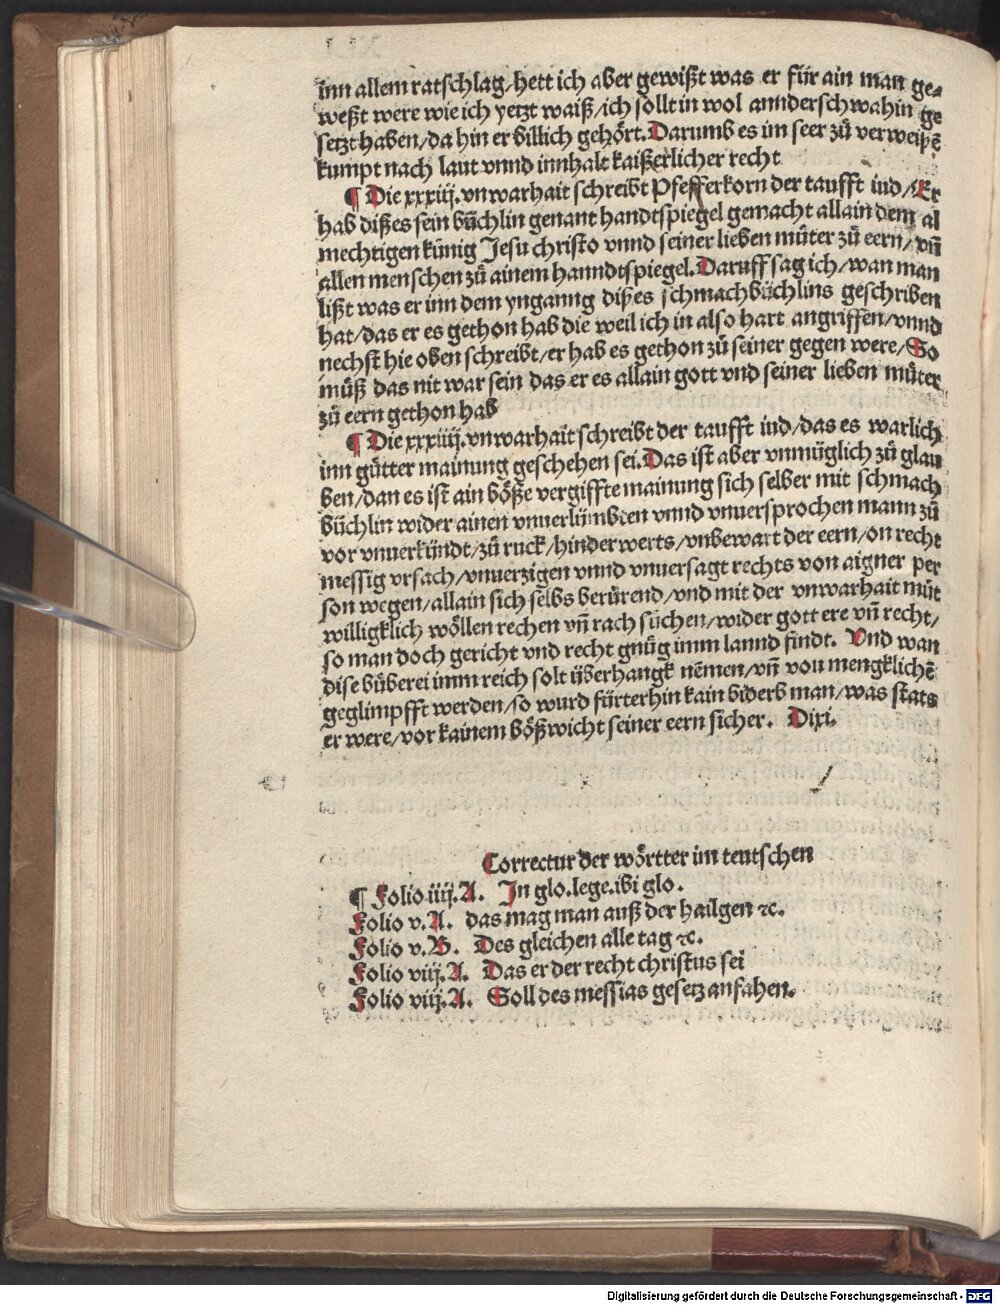 inn allem ratschlag/hett ich aber gewißt was er für ain man ge⸗
weßt were wie ich yetzt waiß/ich sollt in wol annderschwahin ge
setzt haben/da hin er billich gehört. Darumb es im seer zů verweißē
kumpt nach laut vnnd innhalt kaißerlicher recht
¶ Die xxxiij. vnwarhait schreibt Pfefferkorn der taufft iud/Er
hab dißes sein bůchlin genant handtspiegel gemacht allain dem al
mechtigen künig Jesu christo vnnd seiner lieben můter zů eern/vñ
allen menschen zů ainem hanndtspiegel. Daruff sag ich/wan man
lißt was er inn dem ynganng dißes schmachbüchlins geschriben
hat/das er es gethon hab die weil ich in also hart angriffen/vnnd
nechst hie oben schreibt/er hab es gethon zů seiner gegen were/So
můß das nit war sein das er es allain gott vnd seiner lieben můter
zů eern gethon hab
¶ Die xxxiiij. vnwarhait schreibt der taufft iud/das es warlich
inn gůtter mainung geschehen sei. Das ist aber vnmüglich zů glau
ben/dan es ist ain böße vergiffte mainung sich selber mit schmach
büchlin wider ainen vnuerlümbten vnnd vnuersprochen mann zů
vor vnuerkündt/zů ruck/hinderwerts/vnbewart der eern/on recht
messig vrsach/vnuerzigen vnnd vnuersagt rechts von aigner per
son wegen/allain sich selbs berürend/vnd mit der vnwarhait můt
willigklich wöllen rechen vñ rach sůchen/wider gott ere vñ recht/
so man doch gericht vnd recht gnůg imm lannd findt. Vnd wan
dise bůberei imm reich solt überhangk nēmen/vñ von mengklichē
geglimpfft werden/so wurd fürterhin kain biderb man/was stats
er were/vor kainem bößwicht seiner eern sicher. Dixi.
Correctur der wörtter im teutschen
¶ Folio iiij. A. In glo. lege. ibi glo.
Folio v. A. das mag man auß der hailgen ⁊c.
Folio v. B. Des gleichen alle tag ⁊c.
Folio viij. A. Das er der recht christus sei
Folio viij. A. Soll des messias gesetz anfahen.
Digitalisierung gefördert durch die Deutsche Forschungsgemeinschaft - DFG